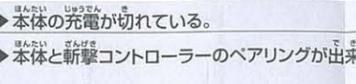 ▶本体の充電が切れている。
▶本体と斬撃コントローラーのペアリングが出来